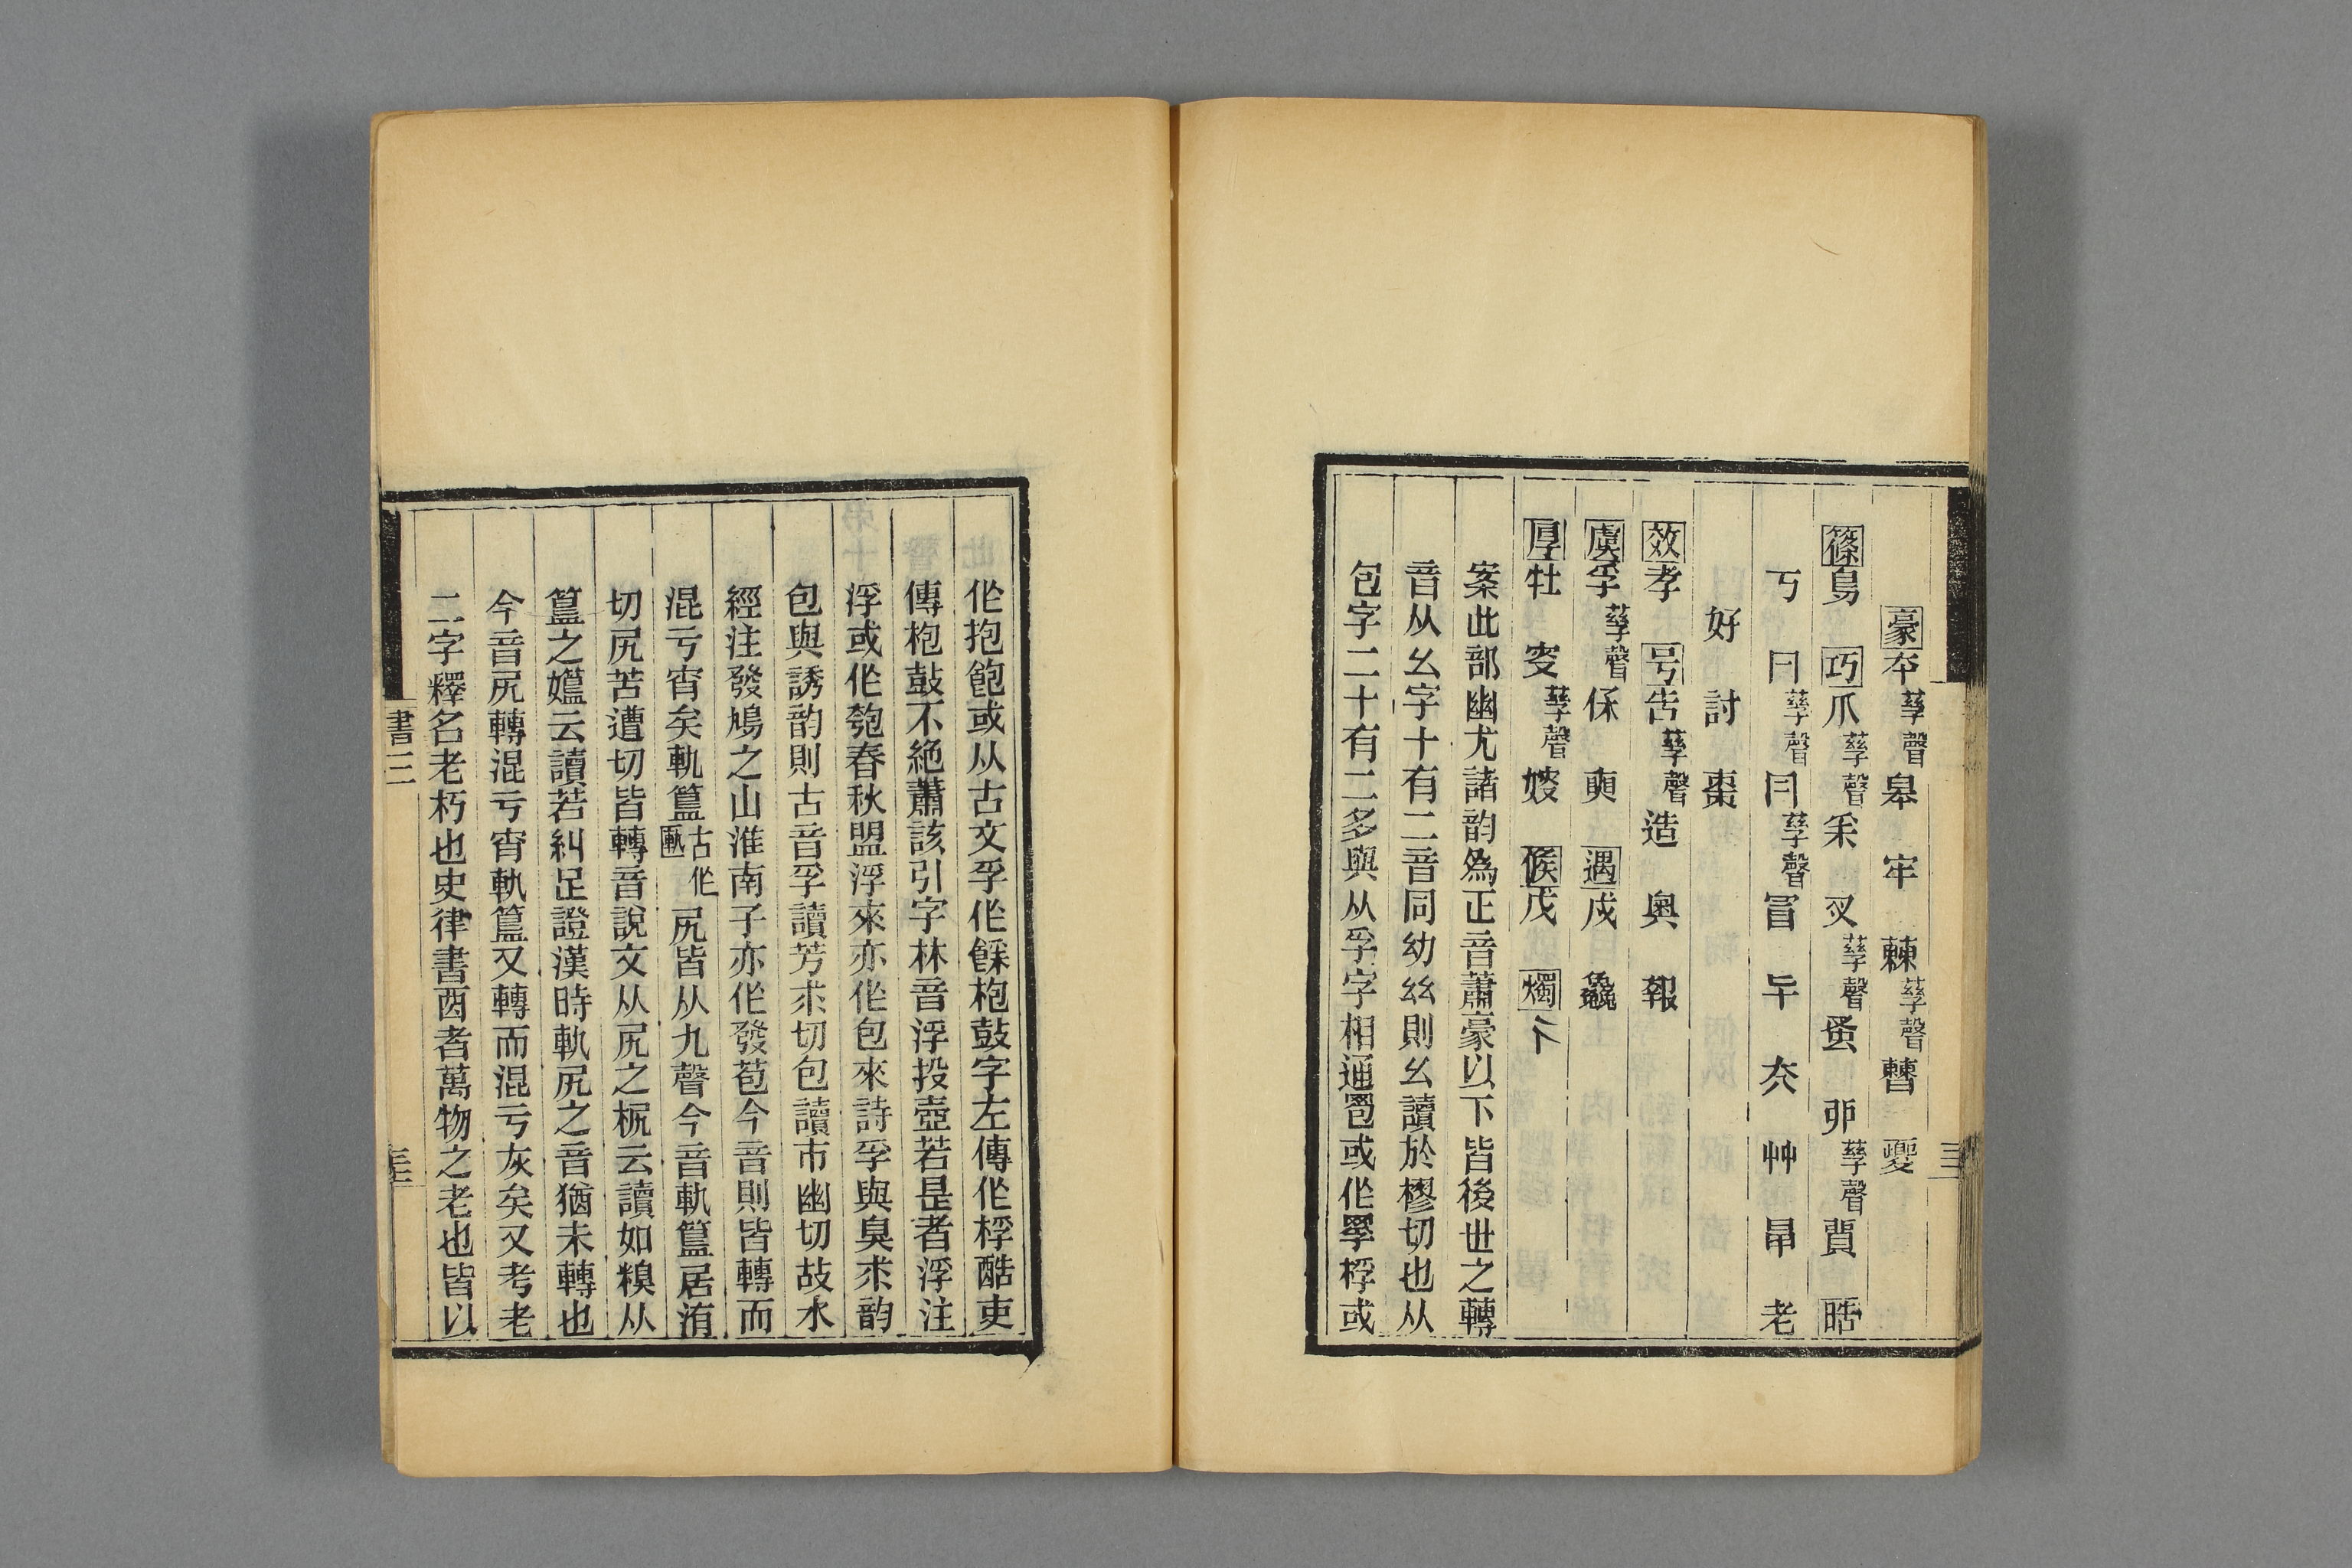 豪 夲 孳聲 皋 牢 㯥 孳聲 轊 夒
篠 鳥 巧 爪 孳聲 采 叉 孳聲 蚤 丣 孳聲 貿 晧
丂 冃 孳聲 冃 孳聲 冒 㐄 夰 艸 㫭 老
好 討 棗
效 孝 号 告 孳聲 造 奥 報
虞 孚 孳聲 保 䩉 遇 戍 䨻
厚 牡 叜 孳聲 嫂 候 戊 燭 彳
案此部幽尤諸韵爲正音蕭豪以下皆後世之轉
音从幺字十有二音同幼𢆶則幺讀於樛切也从
包字二十有二多與从孚字相通雹或作罦桴或
作抱飽或从古文孚作餜枹鼓字左傳作桴酷吏
傳枹鼓不絶蕭該引字林音浮投壺若是者浮注
浮或作匏春秋盟浮來亦作包來詩孚與臭求韵
包與誘韵則古音孚讀芳求切包讀市幽切故水
經注發鳩之山淮南子亦作發苞今音則皆轉而
混亏宵矣軌簋 古作匭 尻皆从九聲今音軌簋居洧
切尻苦遭切皆轉音說文从尻之㭁云讀如糗从
簋之㜭云讀若糾足證漢時軌尻之音猶未轉也
今音尻轉混亏宵軌簋又轉而混亏灰矣又考老
二字釋名老朽也史律書酉者萬物之老也皆以
書三